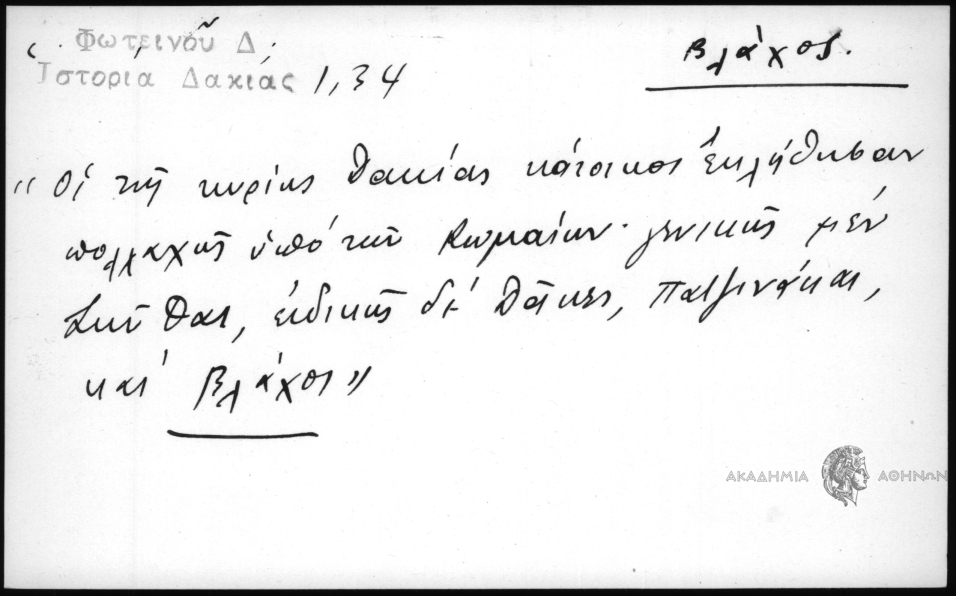 Φωτεινοῦ Δ.
Ἱστορία Δακίας 1,34
Βλάχος.
“ Οἱ τῆς κυρίως Δακίας κάτοικοι ἐκλήθησαν
πολλαχῶς ὑπό τῶν Ῥωμαίων· γενικῶς μέν
Σκύθαι, εἰδικῶς δέ Δᾶκες, Πατζινάκαι,
καί Βλάχοι”
ΑΚΑΔΗΜΙΑ ΑΘΗΝΩΝ